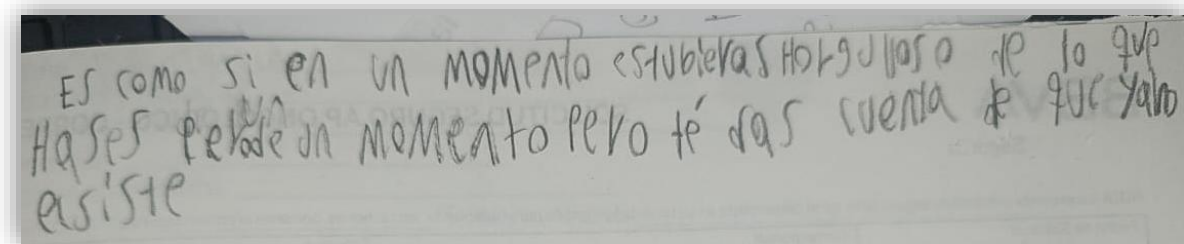 Es como si en un momento estubieras Horgulloso de lo que
Hases de un momento pero té das cuenta de que yano
esiste